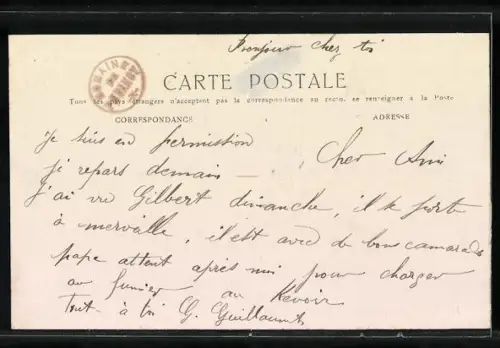 Bonjour chez toi
CARTE POSTALE
Tous les pays étrangers n'acceptent pas la correspondance au recto, se renseigner à la Poste
CORRESPONDANCE
ADRESSE
Cher Ami
Je suis en permission
je repars demain —
j'ai vu Gilbert dimanche, il se porte
à merveille, il est avec de bons camarades
papa attent après moi pour charger
au fumier au Revoir
Tout à toi G. Guillaumet